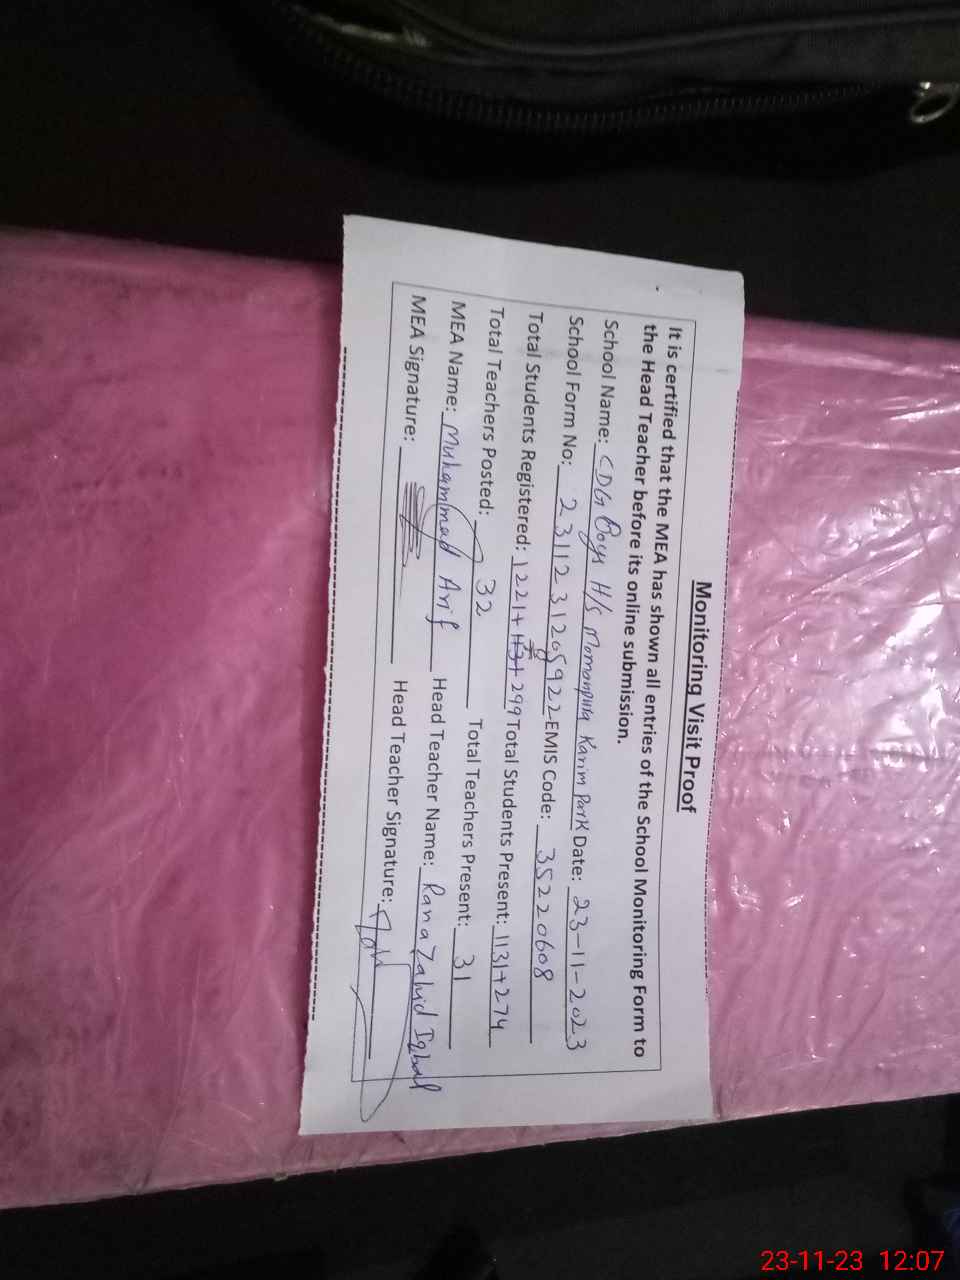 Monitoring Visit Proof
It is certified that the MEA has shown all entries of the School Monitoring Form to
the Head Teacher before its online submission.
School Name: CDG Boys H/S Momanpura Karim Park Date: 23-11-2023
School Form No: EMIS Code: 35220608
Total Students Registered: 1221+ 299 Total Students Present: 1131+274
Total Teachers Posted: 32 Total Teachers Present: 31
MEA Name: Muhammad Arif Head Teacher Name: Rana Zahid Iqbal
MEA Signature: Head Teacher Signature:
23-11-23 12:07